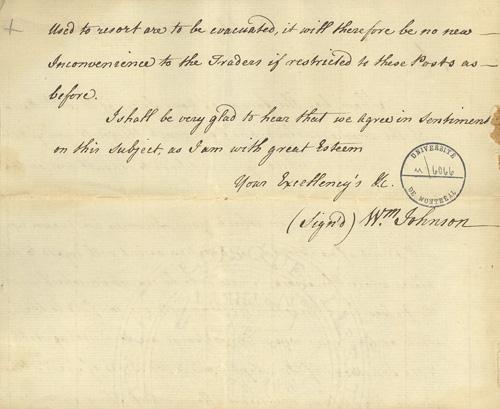 Used to resort are to be evacuated, it will therefore be no new —
Inconvenience to the Traders if restricted to these Posts as —
before.
I shall be very glad to hear that we agree in Sentiment
on this Subject, as I am with great Esteem
Your Excellency's &c.
(Sign'd) Wm Johnson
UNIVERSITÉ
DE MONTRÉAL